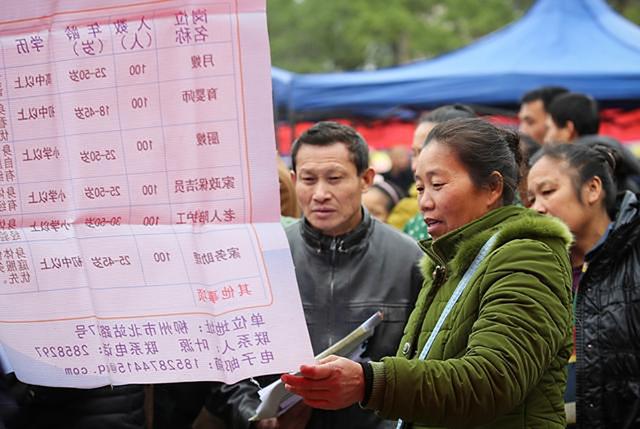 岗位名称 人数（人） 年龄（岁） 学历
月嫂 100 25-50岁 高中以上
育婴师 100 18-45岁 初中以上
厨嫂 100 25-50岁 小学以上
家政保洁员 100 25-50岁 小学以上
老人陪护工 100 30-60岁 小学以上
家务助理 100 25-45岁 初中以上
其他事项
单位地址：柳州市北站路7号
联系人：叶源 联系电话：2858297
电子邮箱：